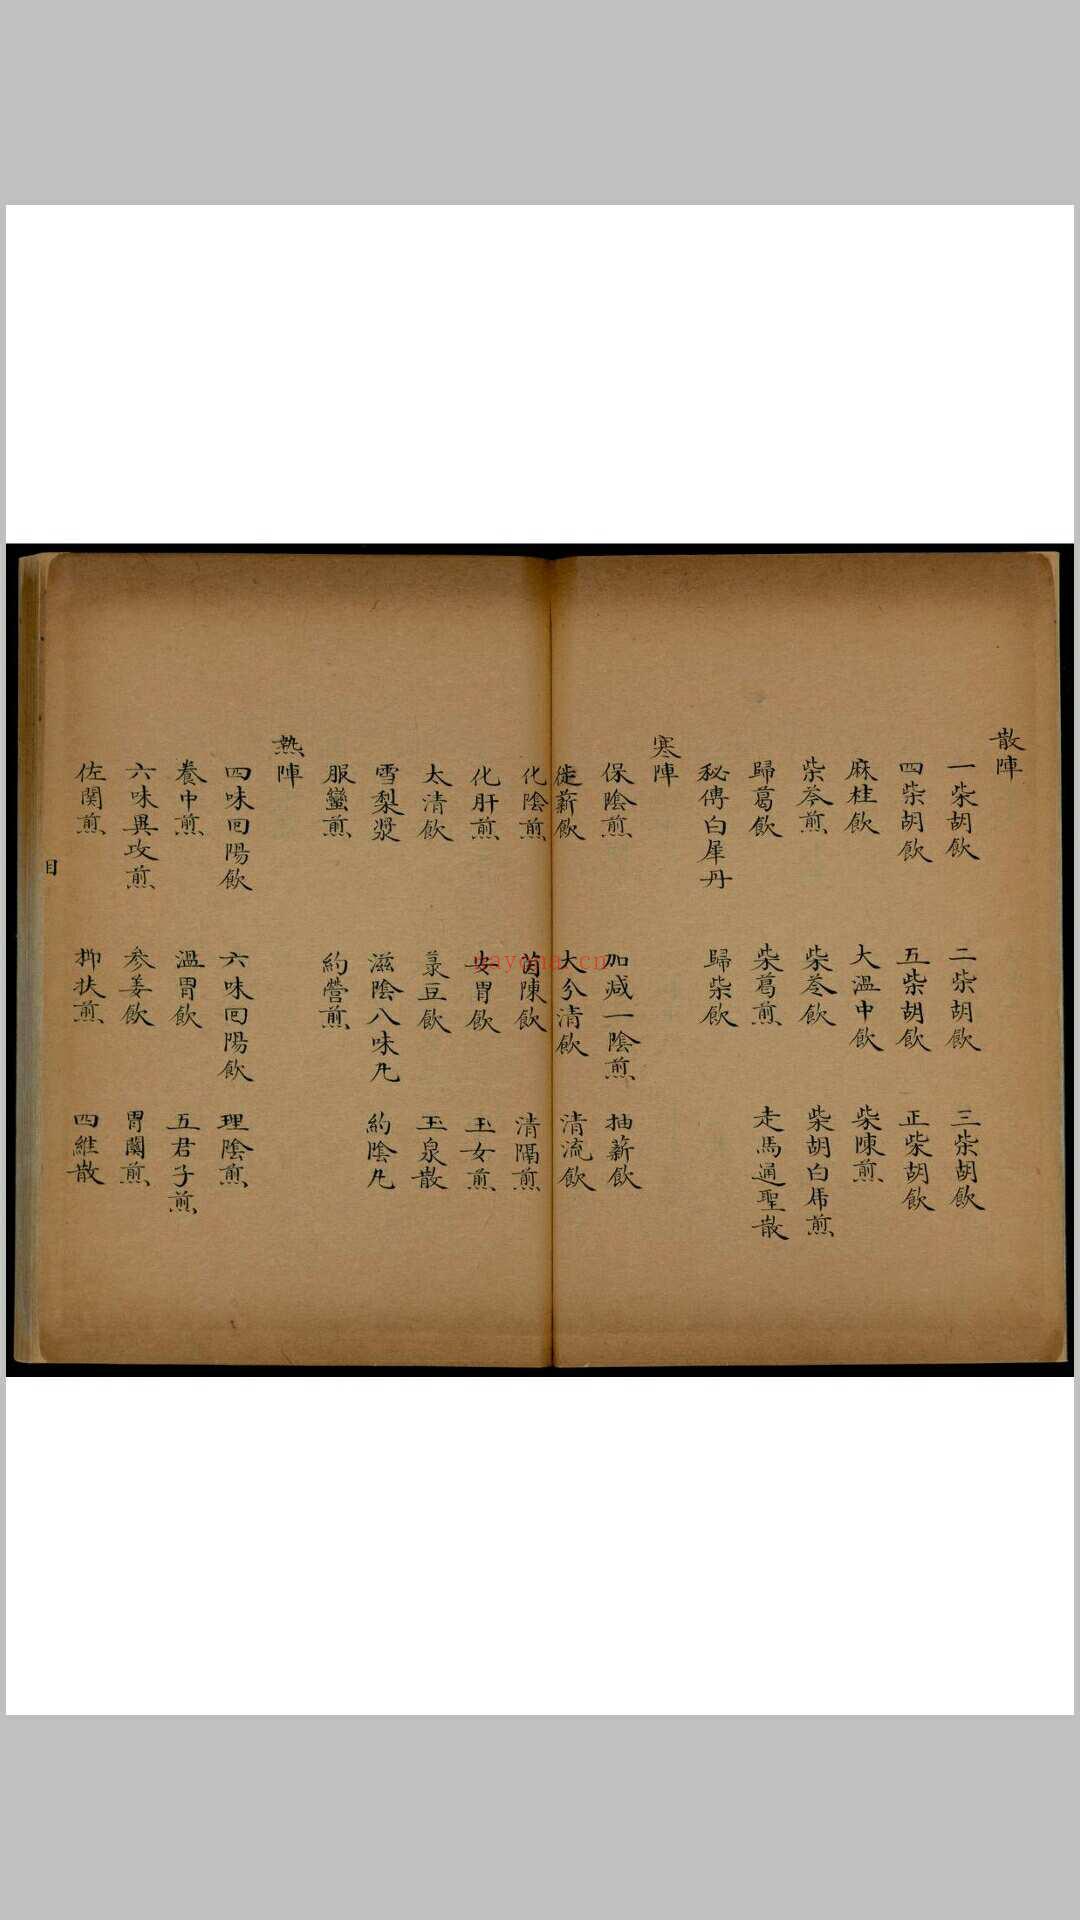 散陣
一柴胡飲 二柴胡飲 三柴胡飲
四柴胡飲 五柴胡飲 正柴胡飲
麻桂飲 大溫中飲 柴陳煎
柴芩煎 柴苓飲 柴胡白虎煎
歸葛飲 柴葛煎 走馬通聖散
秘傳白犀丹 歸柴飲
寒陣
保陰煎 加減一陰煎 抽薪飲
徙薪飲 大分清飲 清流飲
化陰煎 茵陳飲 清隔煎
化肝煎 安胃飲 玉女煎
太清飲 菉豆飲 玉泉散
雪梨漿 滋陰八味凡 約陰凡
服蠻煎 約營煎
熱陣
四味回陽飲 六味回陽飲 理陰煎
養中煎 溫胃飲 五君子煎
六味異攻煎 參姜飲 胃關煎
佐関煎 抑扶煎 四維散
目
nayona.cn